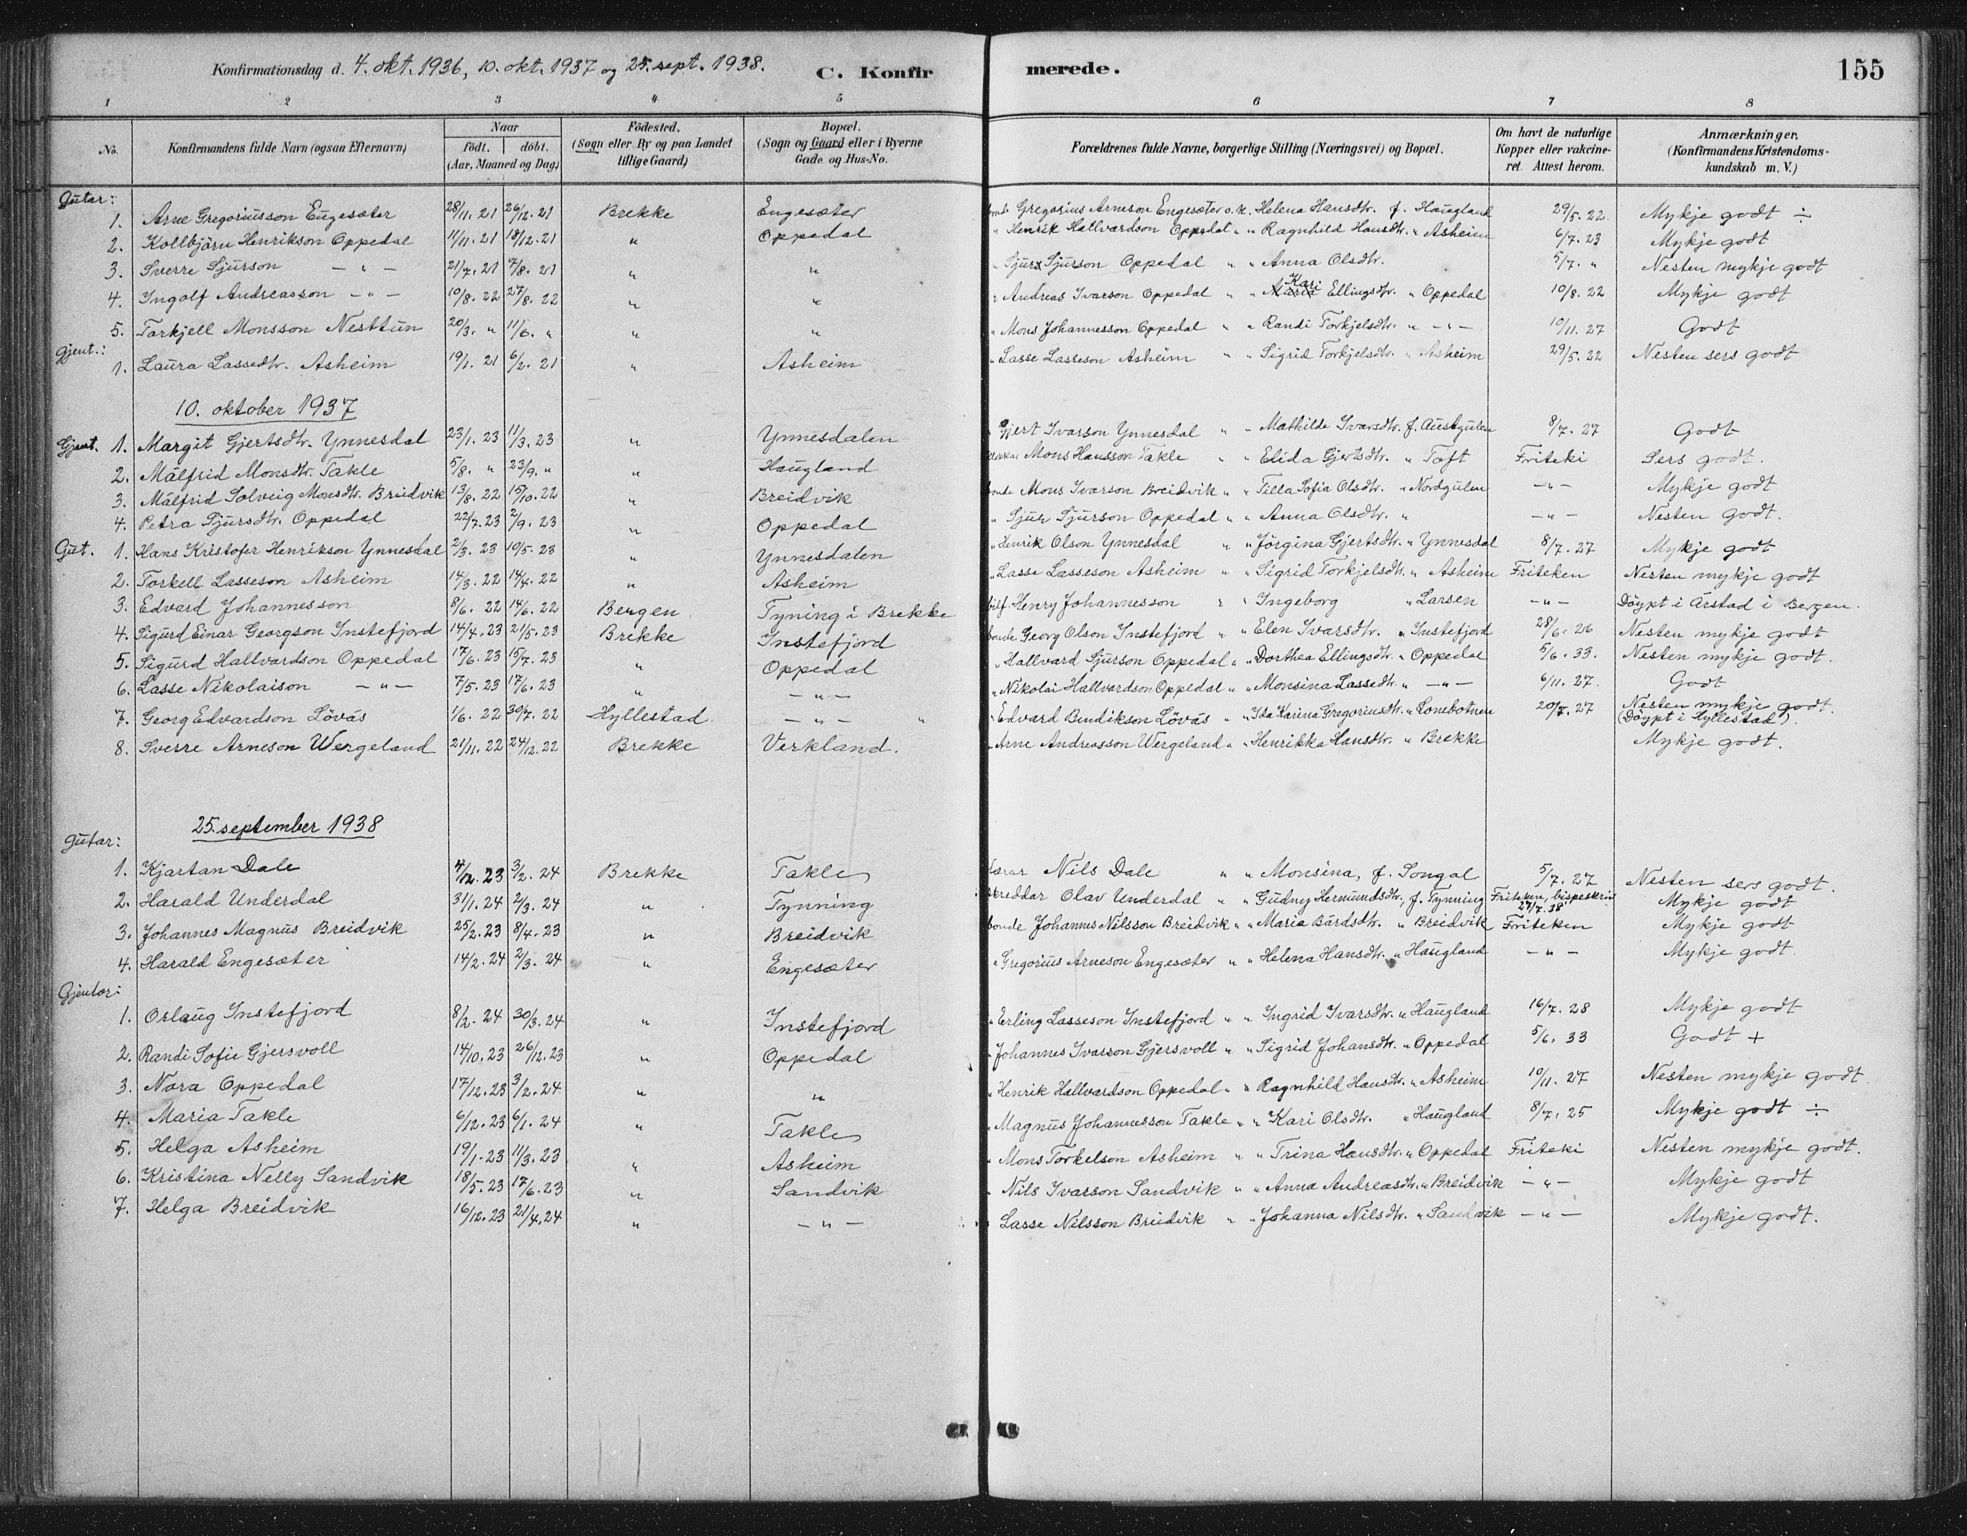 Konfirmationsdag d. 4. okt. 1936, 10. okt. 1937 og 25. sept. 1938. C. Konfirmerede. 155
1 2 3 4 5 6 7 8
No. Konfirmandens fulde Navn (ogsaa Efternavn) Naar født. døbt. (Aar, Maaned og Dag) Fødested. (Sogn eller By og paa Landet tillige Gaard) Bopæl. (Sogn og Gaard eller i Byerne Gade og Hus-No. Forældrenes fulde Navne, borgerlige Stilling (Næringsvei) og Bopæl. Om havt de naturlige Kopper eller vakcineret. Attest herom. Anmærkninger. (Konfirmandens Kristendomskundskab m. V.)
Gutar:
1. Arne Gregoriusson Engesæter 28/11. 21 26/12. 21 Brekke Engesæter bonde Gregorius Arneson Engesæter o.k. Helena Hansdtr. f. Haugland 29/5. 22 Mykje godt ÷
2. Kollbjörn Henrikson Oppedal 11/11. 21 18/12. 21 " Oppedal " Henrik Hallvardson Oppedal " " Ragnhild Hansdtr. " Asheim 6/7. 23 Mykje godt
3. Sverre Sjurson — " — 21/7. 21 7/8. 21 " " " Sjur Sjurson Oppedal " " Anna Olsdtr. 5/7. " Nesten mykje godt
4. Ingolf Andreasson — " — 10/8. 22 27/8. 22 " " " Andreas Ivarson Oppedal " " Kari Ellingsdtr. " Oppedal 10/8. 22 Mykje godt
5. Torkjell Monsson Nesttun 20/3. " 11/6. " " " " Mons Johannesson Oppedal " " Randi Torkjelsdtr. " — " — 10/11. 27 Godt
Gjent.:
1. Laura Lassedtr. Asheim 19/1. 21 6/2. 21 " Asheim " Lasse Lasseson Asheim " " Sigrid Torkjelsdtr. " Asheim 29/5. 22 Nesten sers godt
10. oktober 1937
Gjent. 1. Margit Gjertsdtr. Ynnesdal 23/1. 23 11/3. 23 " Ynnesdalen " Gjert Ivarson Ynnesdal " " Mathilde Ivarsdtr. f. Austgulen 8/7. 27 Godt
2. Målfrid Monsdtr. Takle 5/8. " 23/9. " " Haugland Mons Hansson Takle " " Elida Gjertsdtr. " Toft Friteki Sers godt.
3. Målfrid Solveig Monsdtr. Breidvik 13/8. 22 15/10. 22 " Breidvik bonde Mons Ivarson Breidvik " " Tilla Sofia Olsdtr. " Nordgulen — " — Mykje godt
4. Petra Sjursdtr. Oppedal 22/7. 23 2/9. 23 " Oppedal " Sjur Sjurson Oppedal " " Anna Olsdtr. " — " — Nesten godt.
Gut. 1. Hans Kristofer Henrikson Ynnesdal 2/3. 23 10/5. 23 " Ynnesdalen " Henrik Olson Ynnesdal " " Jörgina Gjertsdtr. " Ynnesdal 8/7. 27 Mykje godt
2. Torkell Lasseson Asheim 14/3. 22 14/4. 22 " Asheim " Lasse Lasseson Asheim " " Sigrid Torkjelsdtr. " Asheim Friteken Nesten mykje godt
3. Edvard Johannesson 8/6. 22 14/6. 22 Bergen Tyning i Brekke Henry Johannesson " " Ingeborg " Larsen — " — Döypt i Årstad i Bergen.
4. Sigurd Einar Georgson Instefjord 14/4. 23 21/5. 23 Brekke Instefjord bonde Georg Olson Instefjord " " Elen Ivarsdtr. " Instefjord 28/6. 26 Nesten mykje godt
5. Sigurd Hallvardson Oppedal 17/6. 23 15/7. 23 " Oppedal " Hallvard Sjurson Oppedal " " Dorthea Ellingsdtr. " Oppedal 5/6. 33. Nesten mykje godt.
6. Lasse Nikolaison — " — 7/5. 23 17/6. 23 " — " — " Nikolai Hallvardson Oppedal " " Monsina Lassedtr. " — " — 6/11. 27. Godt
7. Georg Edvardson Lövås 1/6. 22 30/7. 22 Hyllestad — " — " " Edvard Bendikson Lövås " " Ida Karina Gregoriusdtr. " Lonebotnen 20/7. 27 Nesten mykje godt. (Döypt i Hyllestad).
8. Sverre Arneson Wergeland 21/11. 22 24/12. 22 Brekke Verkland. " Arne Andreasson Wergeland " " Henrikka Hansdtr. " Brekke Mykje godt.
25. september 1938
Gutar:
1. Kjartan Dale 4/12. 23 3/2. 24 Brekke Takle Nils Dale " " Monsina, f. Songal 5/7. 27 Nesten sers godt.
2. Harald Underdal 31/1. 24 2/3. 24 " Tynning skreddar Olav Underdal " " Gudny Hermundsdtr, f. Tynning Friteken, bispeskriv 27/7. 38 Mykje godt
3. Johannes Magnus Breidvik 25/2. 23 8/4. 23 " Breidvik bonde Johannes Nilsson Breidvik " " Maria Bårdsdtr. " Breidvik Friteken Mykje godt
4. Harald Engesæter 14/2. 24 2/3. 24 " Engesæter " Gregorius Arneson Engesæter " " Helena Hansdtr. " Haugland — " — Mykje godt.
Gjentor:
1. Orlaug Instefjord 8/2. 24 30/3. 24 " Instefjord " Erling Lasseson Instefjord " " Ingrid Ivarsdtr. " Haugland 16/7. 28 Mykje godt
2. Randi Sofie Gjersvoll 14/10. 23 26/12. 23 " Oppedal " Johannes Ivarson Gjersvoll " " Sigrid Johansdtr. " Oppedal 5/6. 33 Godt +
3. Nora Oppedal 17/12. 23 3/2. 24 " " " Henrik Hallvardson Oppedal " " Ragnhild Hansdtr. " Asheim 10/11. 27 Nesten mykje godt
4. Maria Takle 6/12. 23 6/1. 24 " Takle " Magnus Johannesson Takle " " Kari Olsdtr. " Haugland 8/7. 25 Mykje godt ÷
5. Helga Asheim 19/1. 23 11/3. 23 " Asheim " Mons Torkelson Asheim " " Trina Hansdtr. " Oppedal Friteki Nesten mykje godt.
6. Kristina Nelly Sandvik 18/5. 23 17/6. 23 " Sandvik " Nils Ivarson Sandvik " " Anna Andreasdtr. " Breidvik — " — Mykje godt
7. Helga Breidvik 16/12. 23 21/4. 24 " — " — " Lasse Nilsson Breidvik " " Johanna Nilsdtr. " Sandvik — " — Mykje godt.